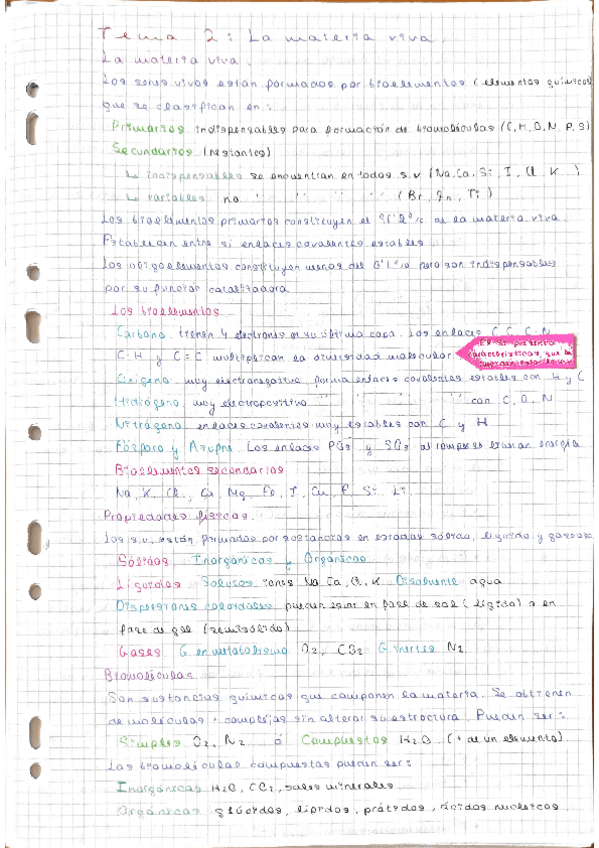 Tema 2: La materia viva.
La materia viva.
Los seres vivos están formados por bioelementos (elementos químicos)
que se clasifican en:
Primarios indispensables para formación de biomoléculas (C, H, O, N, P, S)
Secundarios (restantes)
↳ indispensables se encuentran en todos s.v (Na, Ca, Si, I, Cl, K )
↳ variables no " " " " " (Br, Zn, Ti )
Los bioelementos primarios constituyen el % de la materia viva.
Establecen entre sí enlaces covalentes estables
Los oligoelementos constituyen menos del 0'1% pero son indispensables
por su función catalizadora
Los bioelementos
Carbono tienen 4 electrones en su última capa. Los enlaces C-C, C-N
C-H y C=C multiplican la diversidad molecular
características que
Oxígeno muy electronegativo, forma enlaces covalentes estables con H y C
Hidrógeno muy electropositivo " " con C, O, N
Nitrógeno enlaces covalentes muy estables con C y H
Fósforo y Azufre. Los enlaces y al romperse liberan energía
Bioelementos secundarios
Na, K, Cl, Ca, Mg, Fe, I, Cu, F, Si, Li
Propiedades físicas.
Los s.v, están formados por sustancias en estados sólido, líquido y gaseoso.
Sólidos Inorgánicas y Orgánicas
Líquidos Solutos iones Na, Ca, Cl, K Disolvente agua
Dispersiones coloidales pueden estar en fase de sol (líquido) o en
fase de gel (semisólido)
Gases G en metabolismo O₂, CO₂ G inertes N₂
Biomoléculas
Son sustancias químicas que componen la materia. Se obtienen
de moléculas + complejas sin alterar su estructura. Pueden ser:
Simples O₂, N₂ ó Compuestos H₂O (+ de un elemento)
Las biomoléculas compuestas pueden ser:
Inorgánicas H₂O, CO₂, sales minerales
Orgánicas glúcidos, lípidos, prótidos, ácidos nucleicos